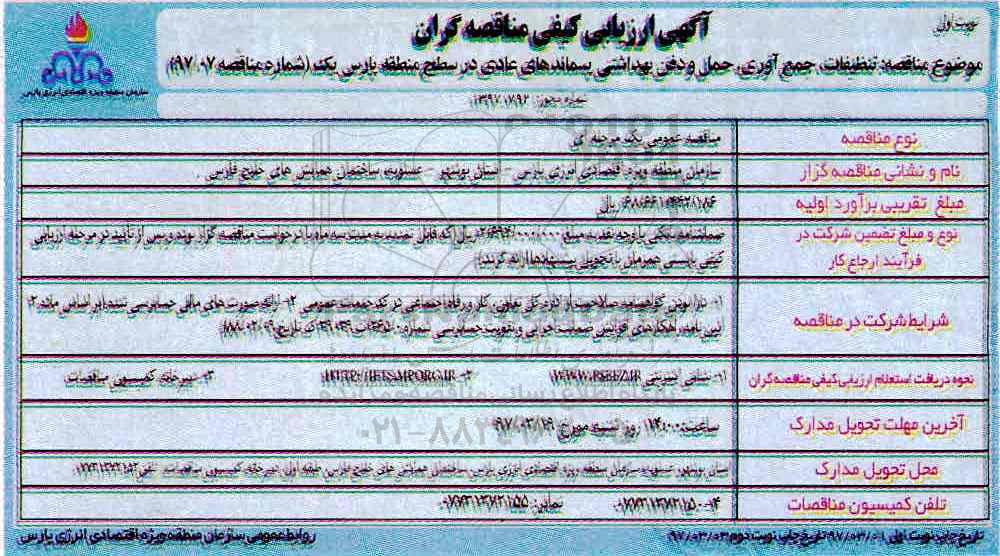 نوبت اول
آگهی ارزیابی کیفی مناقصه گران
موضوع مناقصه: تنظیفات، جمع آوری، حمل و دفن بهداشتی پسماندهای عادی در سطح منطقه پارس یک (شماره مناقصه ۹۷/۰۷)
سازمان منطقه ویژه اقتصادی انرژی پارس
شماره مجوز:
نوع مناقصه
مناقصه عمومی یک مرحله ای
نام و نشانی مناقصه گزار
سازمان منطقه ویژه اقتصادی انرژی پارس - استان بوشهر - عسلویه، ساختمان همایش های خلیج فارس.
مبلغ تقریبی برآورد اولیه
ریال
نوع و مبلغ تضمین شرکت در فرآیند ارجاع کار
ضمانتنامه بانکی یا وجه نقد به مبلغ ریال (که قابل تمدید به مدت سه ماه با درخواست مناقصه گزار بوده و پس از تأیید در مرحله ارزیابی
کیفی بایستی همزمان با تحویل پیشنهادها ارائه گردد.)
شرایط شرکت در مناقصه
۱- دارا بودن گواهینامه صلاحیت از اداره کل تعاون، کار و رفاه اجتماعی در کد خدمات عمومی ۲- ارائه صورت های مالی حسابرسی شده (بر اساس ماده ۲
آیین نامه راهکارهای افزایش ضمانت اجرایی و تقویت حسابرسی
نحوه دریافت استعلام ارزیابی کیفی مناقصه گران
۱- نشانی اینترنتی WWW.PSEEZ.IR ۲- HTTP://IETS.MPORG.IR ۳- دبیرخانه کمیسیون مناقصات
آخرین مهلت تحویل مدارک
ساعت: ۱۴:۰۰ روز شنبه مورخ ۹۷/۰۳/۱۹
محل تحویل مدارک
استان بوشهر، عسلویه، سازمان منطقه ویژه اقتصادی انرژی پارس، ساختمان همایش های خلیج فارس، طبقه اول، دبیرخانه کمیسیون مناقصات، تلفن:
تلفن کمیسیون مناقصات
نمابر: ۰۷۷۳۱۳۷۲۱۵۵
تاریخ چاپ نوبت اول: ۹۷/۰۳/۰۱ تاریخ چاپ نوبت دوم: ۹۷/۰۳/۰۳
روابط عمومی سازمان منطقه ویژه اقتصادی انرژی پارس